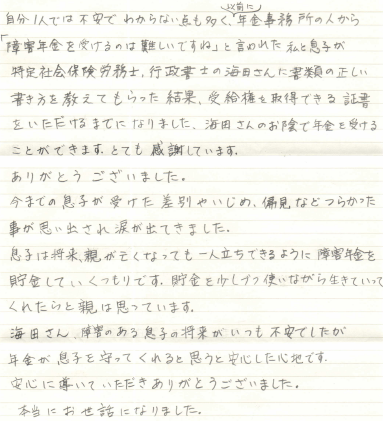 自分1人では不安でわからない点も多く、以前に年金事務所の人から
「障害年金を受けるのは難しいですね」と言われた私と息子が
特定社会保険労務士、行政書士の海田さんに書類の正しい
書き方を教えてもらった結果、受給権を取得できる証書
をいただけるまでになりました。海田さんのお陰で年金を受ける
ことができます。とても感謝しています。
ありがとうございました。
今までの息子が受けた差別やいじめ、偏見などつらかった
事が思い出され涙が出てきました。
息子は将来、親が亡くなっても一人立ちできるように障害年金を
貯金していくつもりです。貯金を少しづつ使いながら生きていって
くれたらと親は思っています。
海田さん、障害のある息子の将来がいつも不安でしたが
年金が息子を守ってくれると思うと安心した心地です。
安心に導いていただきありがとうございました。
本当にお世話になりました。